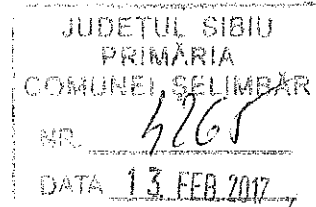 JUDEȚUL SIBIU
PRIMĂRIA
COMUNEI ȘELIMBĂR
NR. 4265
DATA 13. FEB. 2017